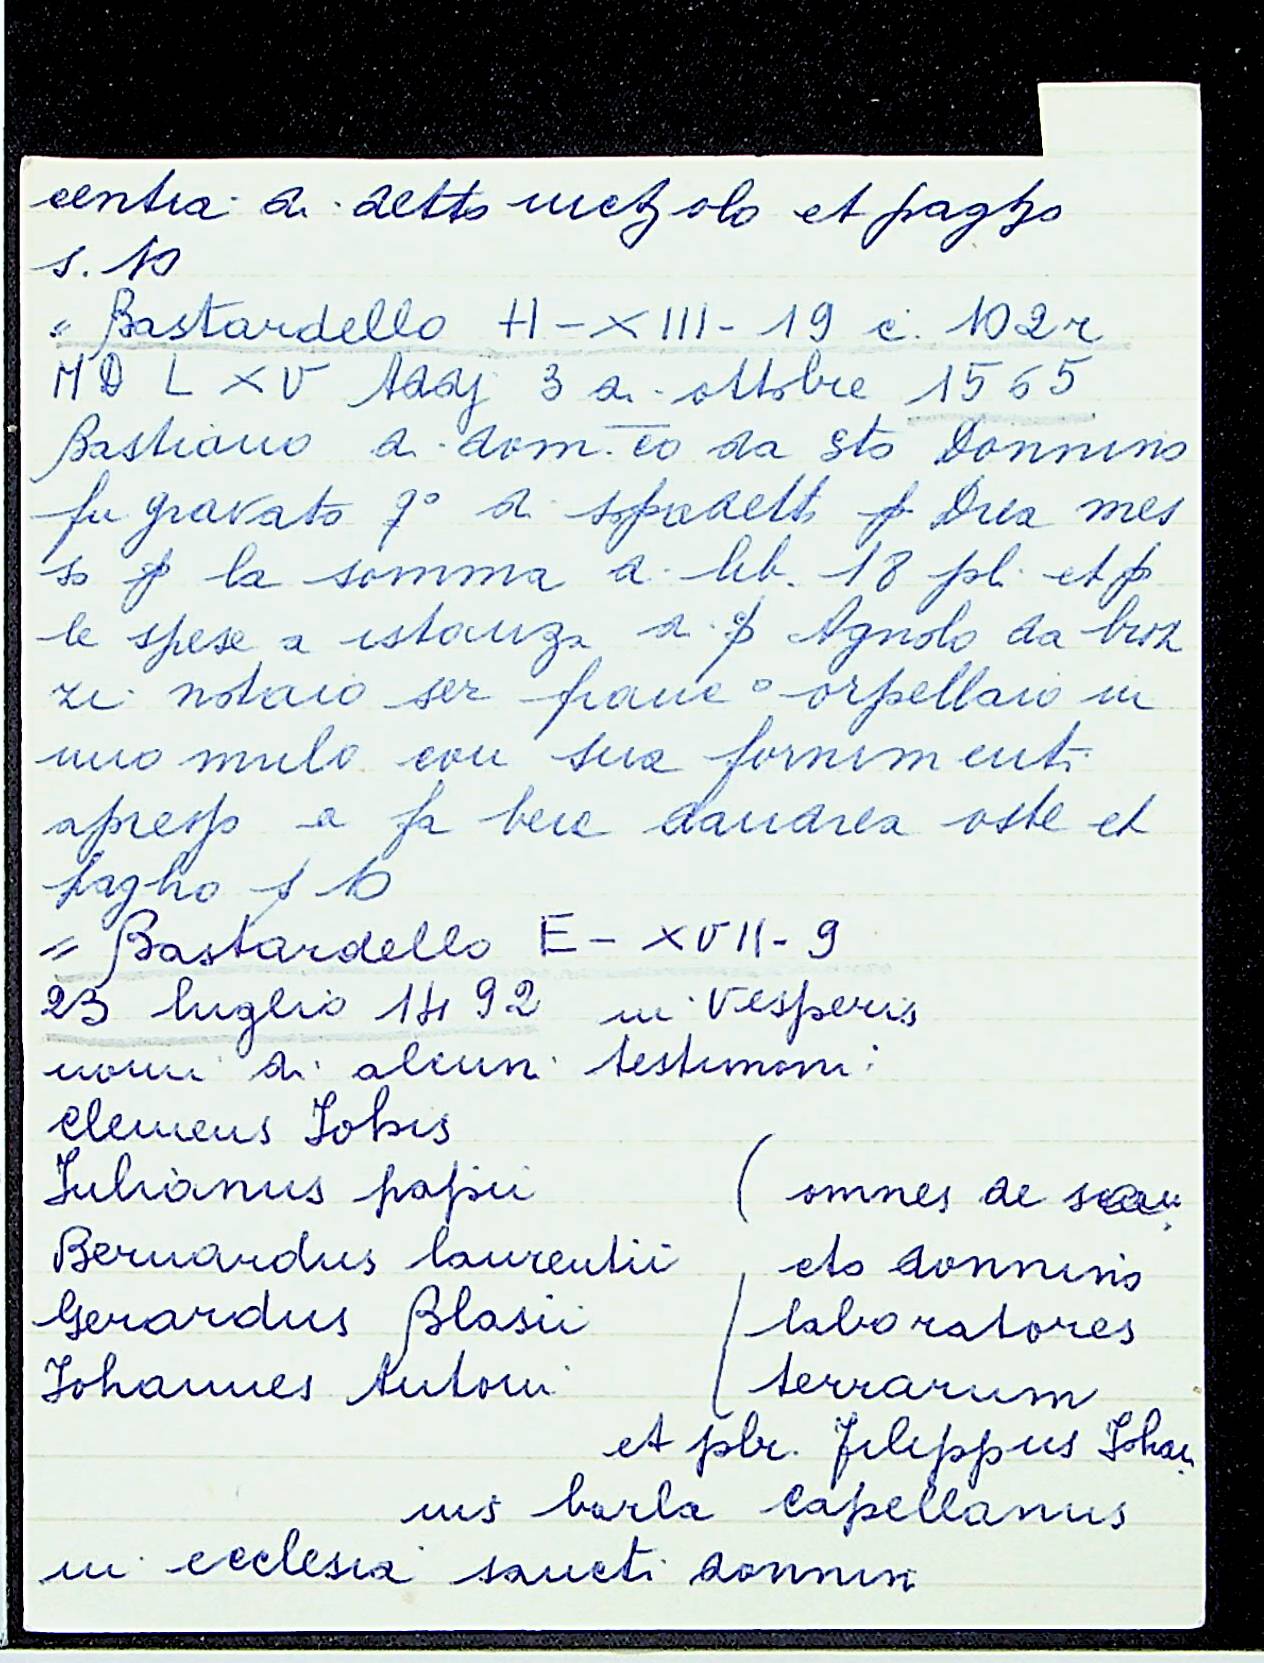 centia di detto metzolo et pagho
s. 10
= Bastardello H-XIII-19 c. 102r
MDLXV Addj 3 di ottobre 1565
Bastiano di dom.co da Sto Donnino
fu gravato q° di sopradetto p Drea mes
so p la somma di lib. 18 pli et p
le spese a istanza di p Agnolo da broz
zi notaio ser franc° orpellaio in
uno mulo con sua fornimenti
apresso a fa bere dandrea oste et
pagho s 10
= Bastardello E-XVII-9
23 luglio 1492 in Vesperis
nomi di alcuni testimoni:
Clemens Johis
Julianus papii ( omnes de san
Bernardus laurentii cto donnino
Gerardus Blasii laboratores
Johannes Antoni terrarum
et pbr. Filippus Johan
nis borla Capellanus
in ecclesia sancti donnini